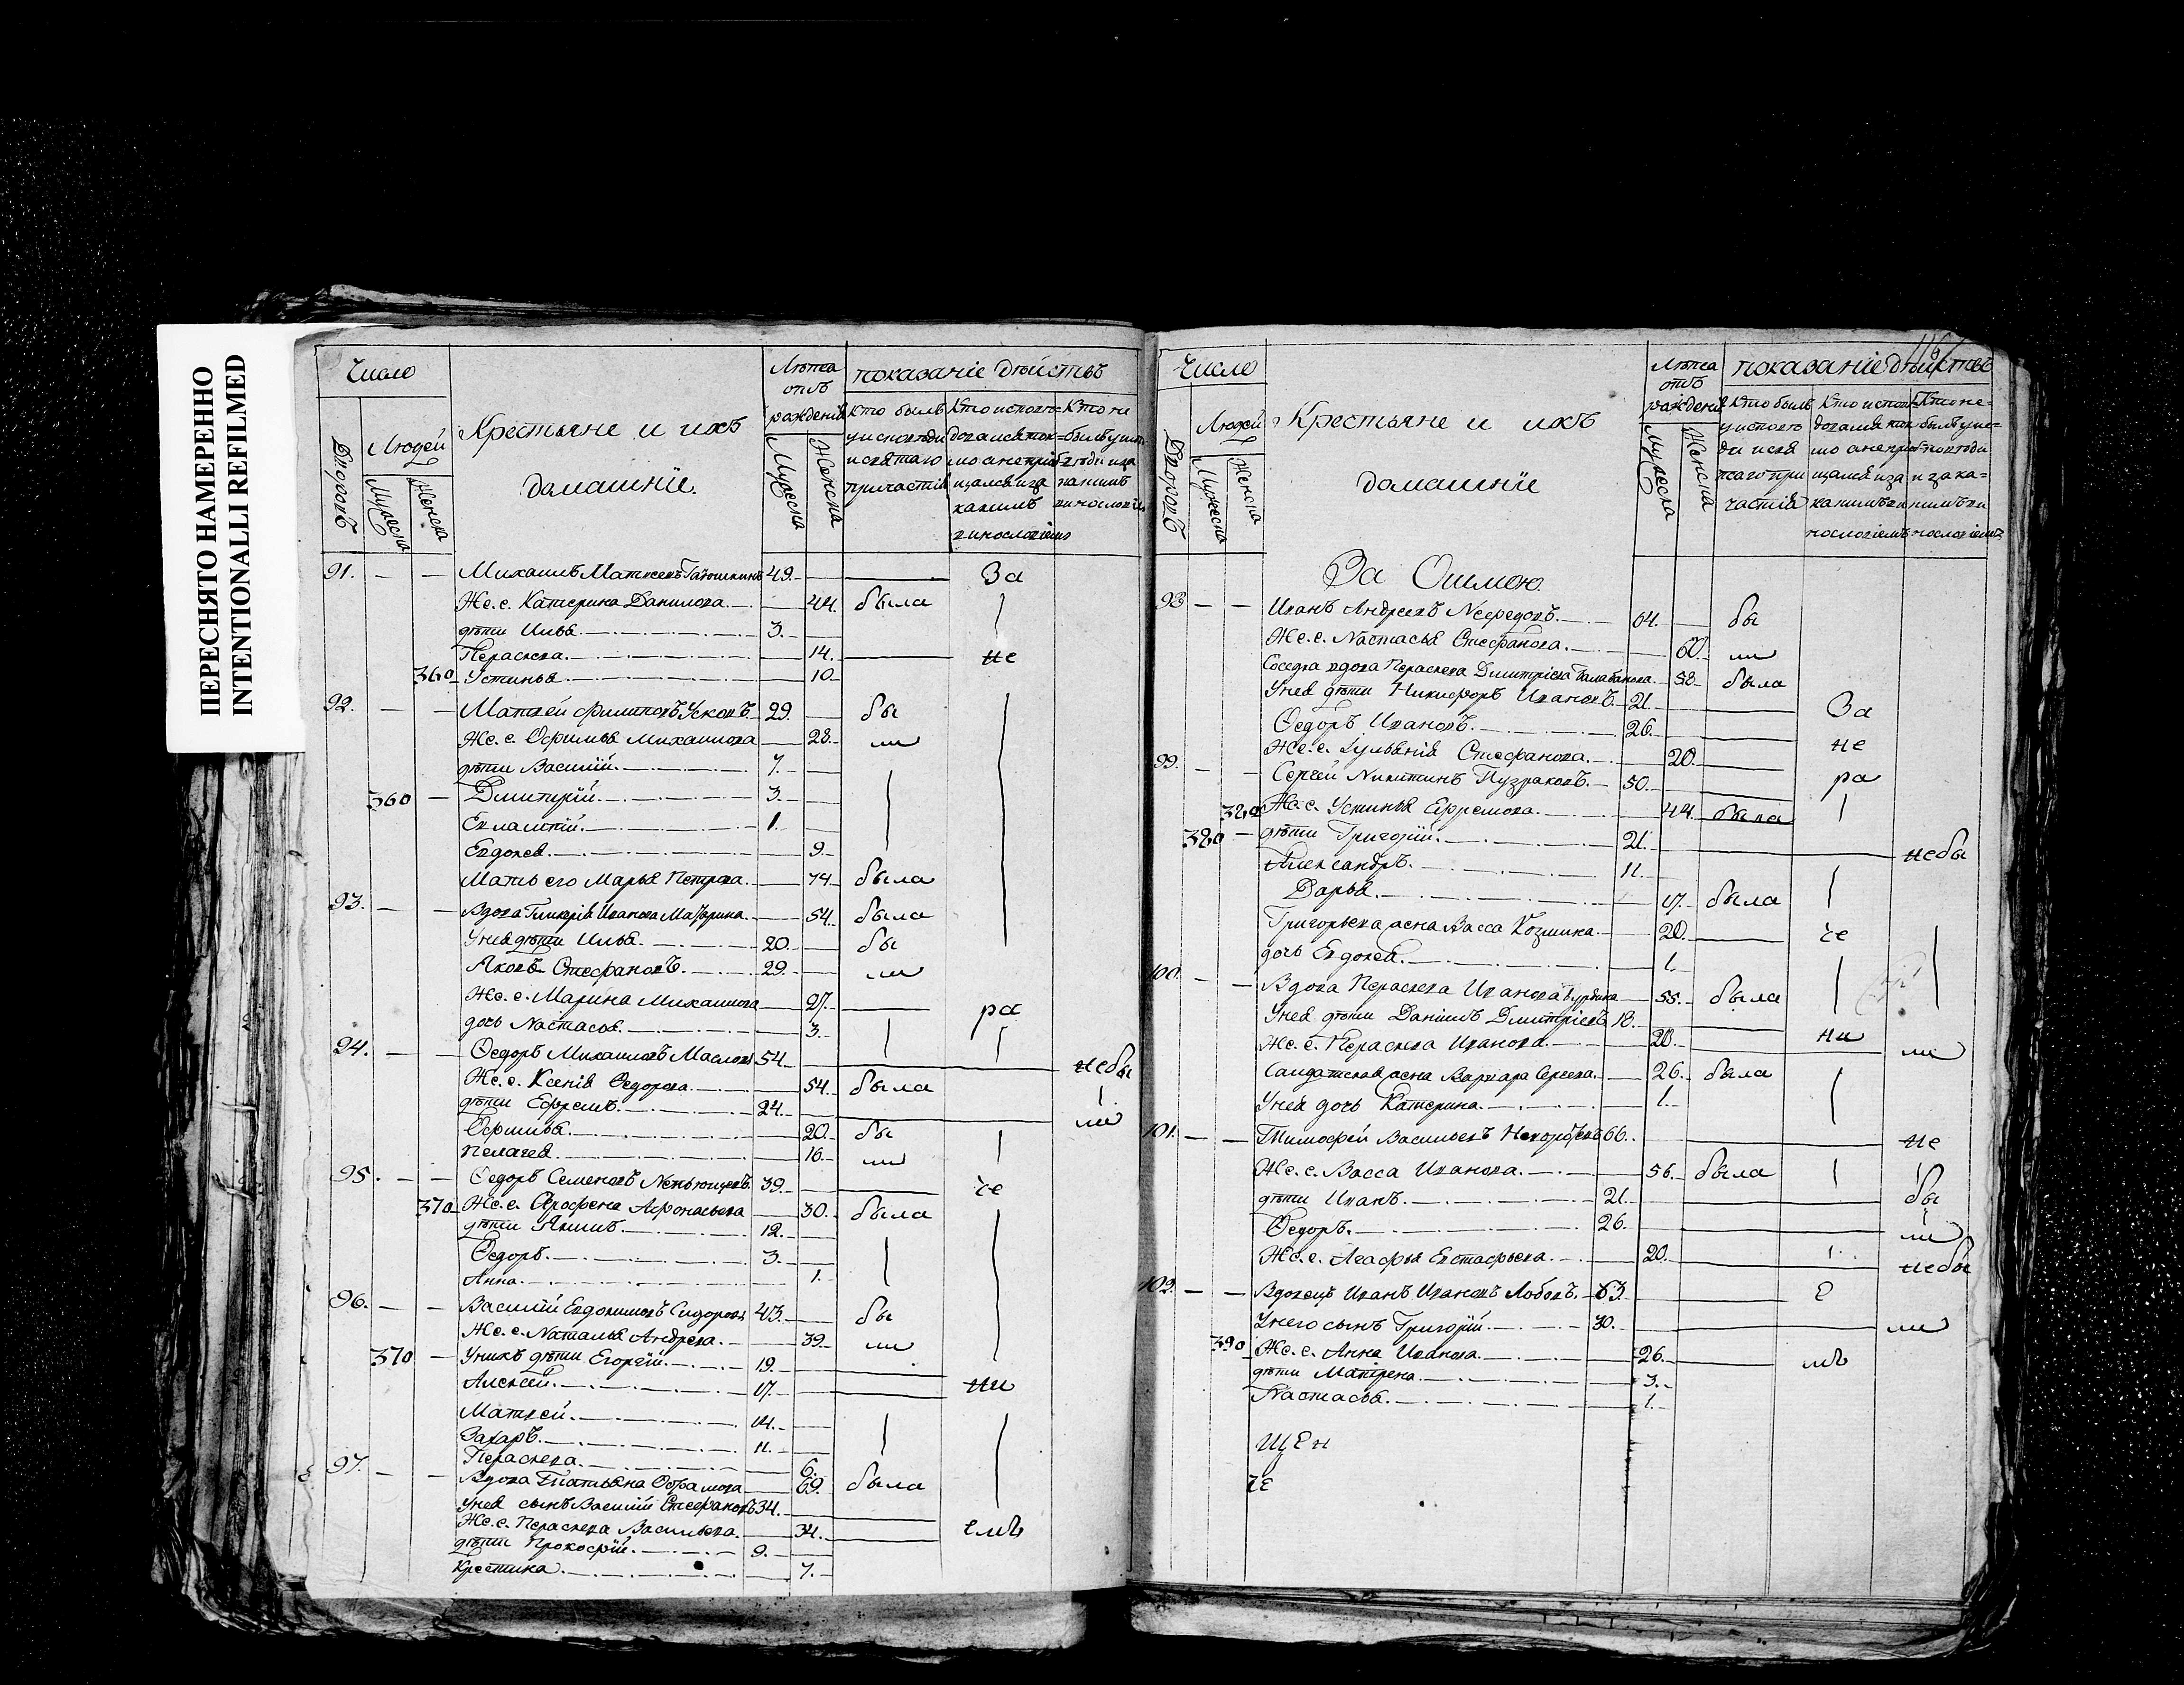 ПЕРЕСНЯТО НАМЕРЕННО
INTENTIONALLI REFILMED
Число
Людей
Дворовъ
Мужеска
Женска
Крестьяне и ихъ
домашніе.
Лѣта
отъ
рожденія
Мужеска
Женска
показаніе дѣйствъ
Кто былъ
у исповѣди
и святаго
причастія
Кто исповѣ=
довался ток=
мо а непріоб=
щался и за
какимъ
винословіемъ
Кто не
былъ у исп
вѣди и за
какимъ
винословіе
91. — — Михаилъ Матвеевъ 49. — За
Же. е. Катерина Данилова 44. была
дѣти Илья 3.
Параскева 14. не
360 Устинья 10.
92. — — Матвей Филиповъ Усковъ 29. бы
Же. е. Офимья Михаилова 28. ли
дѣти Василий 7.
360 — Димитрий 3.
Евлампий 1.
Евдокея 9.
Мать его Марья Петрова 74. была
93. — — Вдова Гликерія Иванова 54. была
У нея дѣти Илья 20. бы
Яковъ Стефановъ 29. ли
Же. е. Марина Михаилова 27. ра
дочь Настасья 3.
94. — — Ѳедоръ Михаиловъ Масловъ 54. небы
Же. е. Ксенія Ѳедорова 54. была
дѣти Ефремъ 24. ли
Офимья 20. бы
Пелагея 16. ли
95. — — Ѳедоръ Семеновъ 39. че
370 Же. е. Афонасьева 30. была
дѣти Якимъ 12.
Ѳедоръ 3.
Анна 1.
96. — — Василий Евдокимовъ Сидоровъ 43. бы
Же. е. Наталья Андреева 39. ли
370 — У нихъ дѣти Егоргий 19.
Алексей 17. ни
Матвей 14.
Захаръ 11.
Параскева 6.
97. — — Вдова Татьяна 69. была
У нея сынъ Василий Стефановъ 34.
Же. е. Параскева Васильева 34. емъ
дѣти Прокофий 9.
Крестина 7.
Число
Людей
Дворовъ
Мужеска
Женска
Крестьяне и ихъ
домашніе
Лѣта
отъ
рожденія
Мужеска
Женска
показаніе дѣйствъ
Кто былъ
у испове
ди и свя
таго при
частія
Кто испов
довался ток
мо а непріоб
щался и за
какимъ ви
нословіемъ
Кто не=
былъ у ис=
поведи
и за ка=
кимъ ви
нословіемъ
За Ошмою
98 — — Иванъ Андреевъ 64. бы
Же. е. Настасья Стефанова 60. ли
Соседка вдова Параскева Димитріева Балабанова 58. была
У нея дѣти Никифоръ Ивановъ 21. За
Ѳедоръ Ивановъ 26. не
Же. е. Іульянія Стефанова 20.
99. — — Сергей Никитинъ Пузраковъ 50. ра
380 Же. е. Устинья Ефремова 44. была
380 — дѣти Григорий 21. небы
Александръ 11.
Дарья 17. была
Григорьева жена Васса Козмина 20. че
дочь Евдокея 1.
100. — — Вдова Параскева Иванова 55. была
У нея дѣти Даниилъ Димитріевъ 18. ни
Же. е. Параскева Иванова 20. ли
Салдатская жена Варвара Сергеева 26. была
У нея дочь Катерина 1.
101. — — Тимофей Васильевъ 66. не
Же. е. Васса Иванова 56. была
дѣти Иванъ 21. бы
Ѳедоръ 26. ли
Же. е. Агафья Евстафьева 20. небы
102. — — Вдовецъ Иванъ Ивановъ Лобовъ 63. е
У него сынъ Григорий 30. ли
390 Же. е. Анна Иванова 26. мъ
дѣти Матрена 3.
Настасья 1.
щен
че